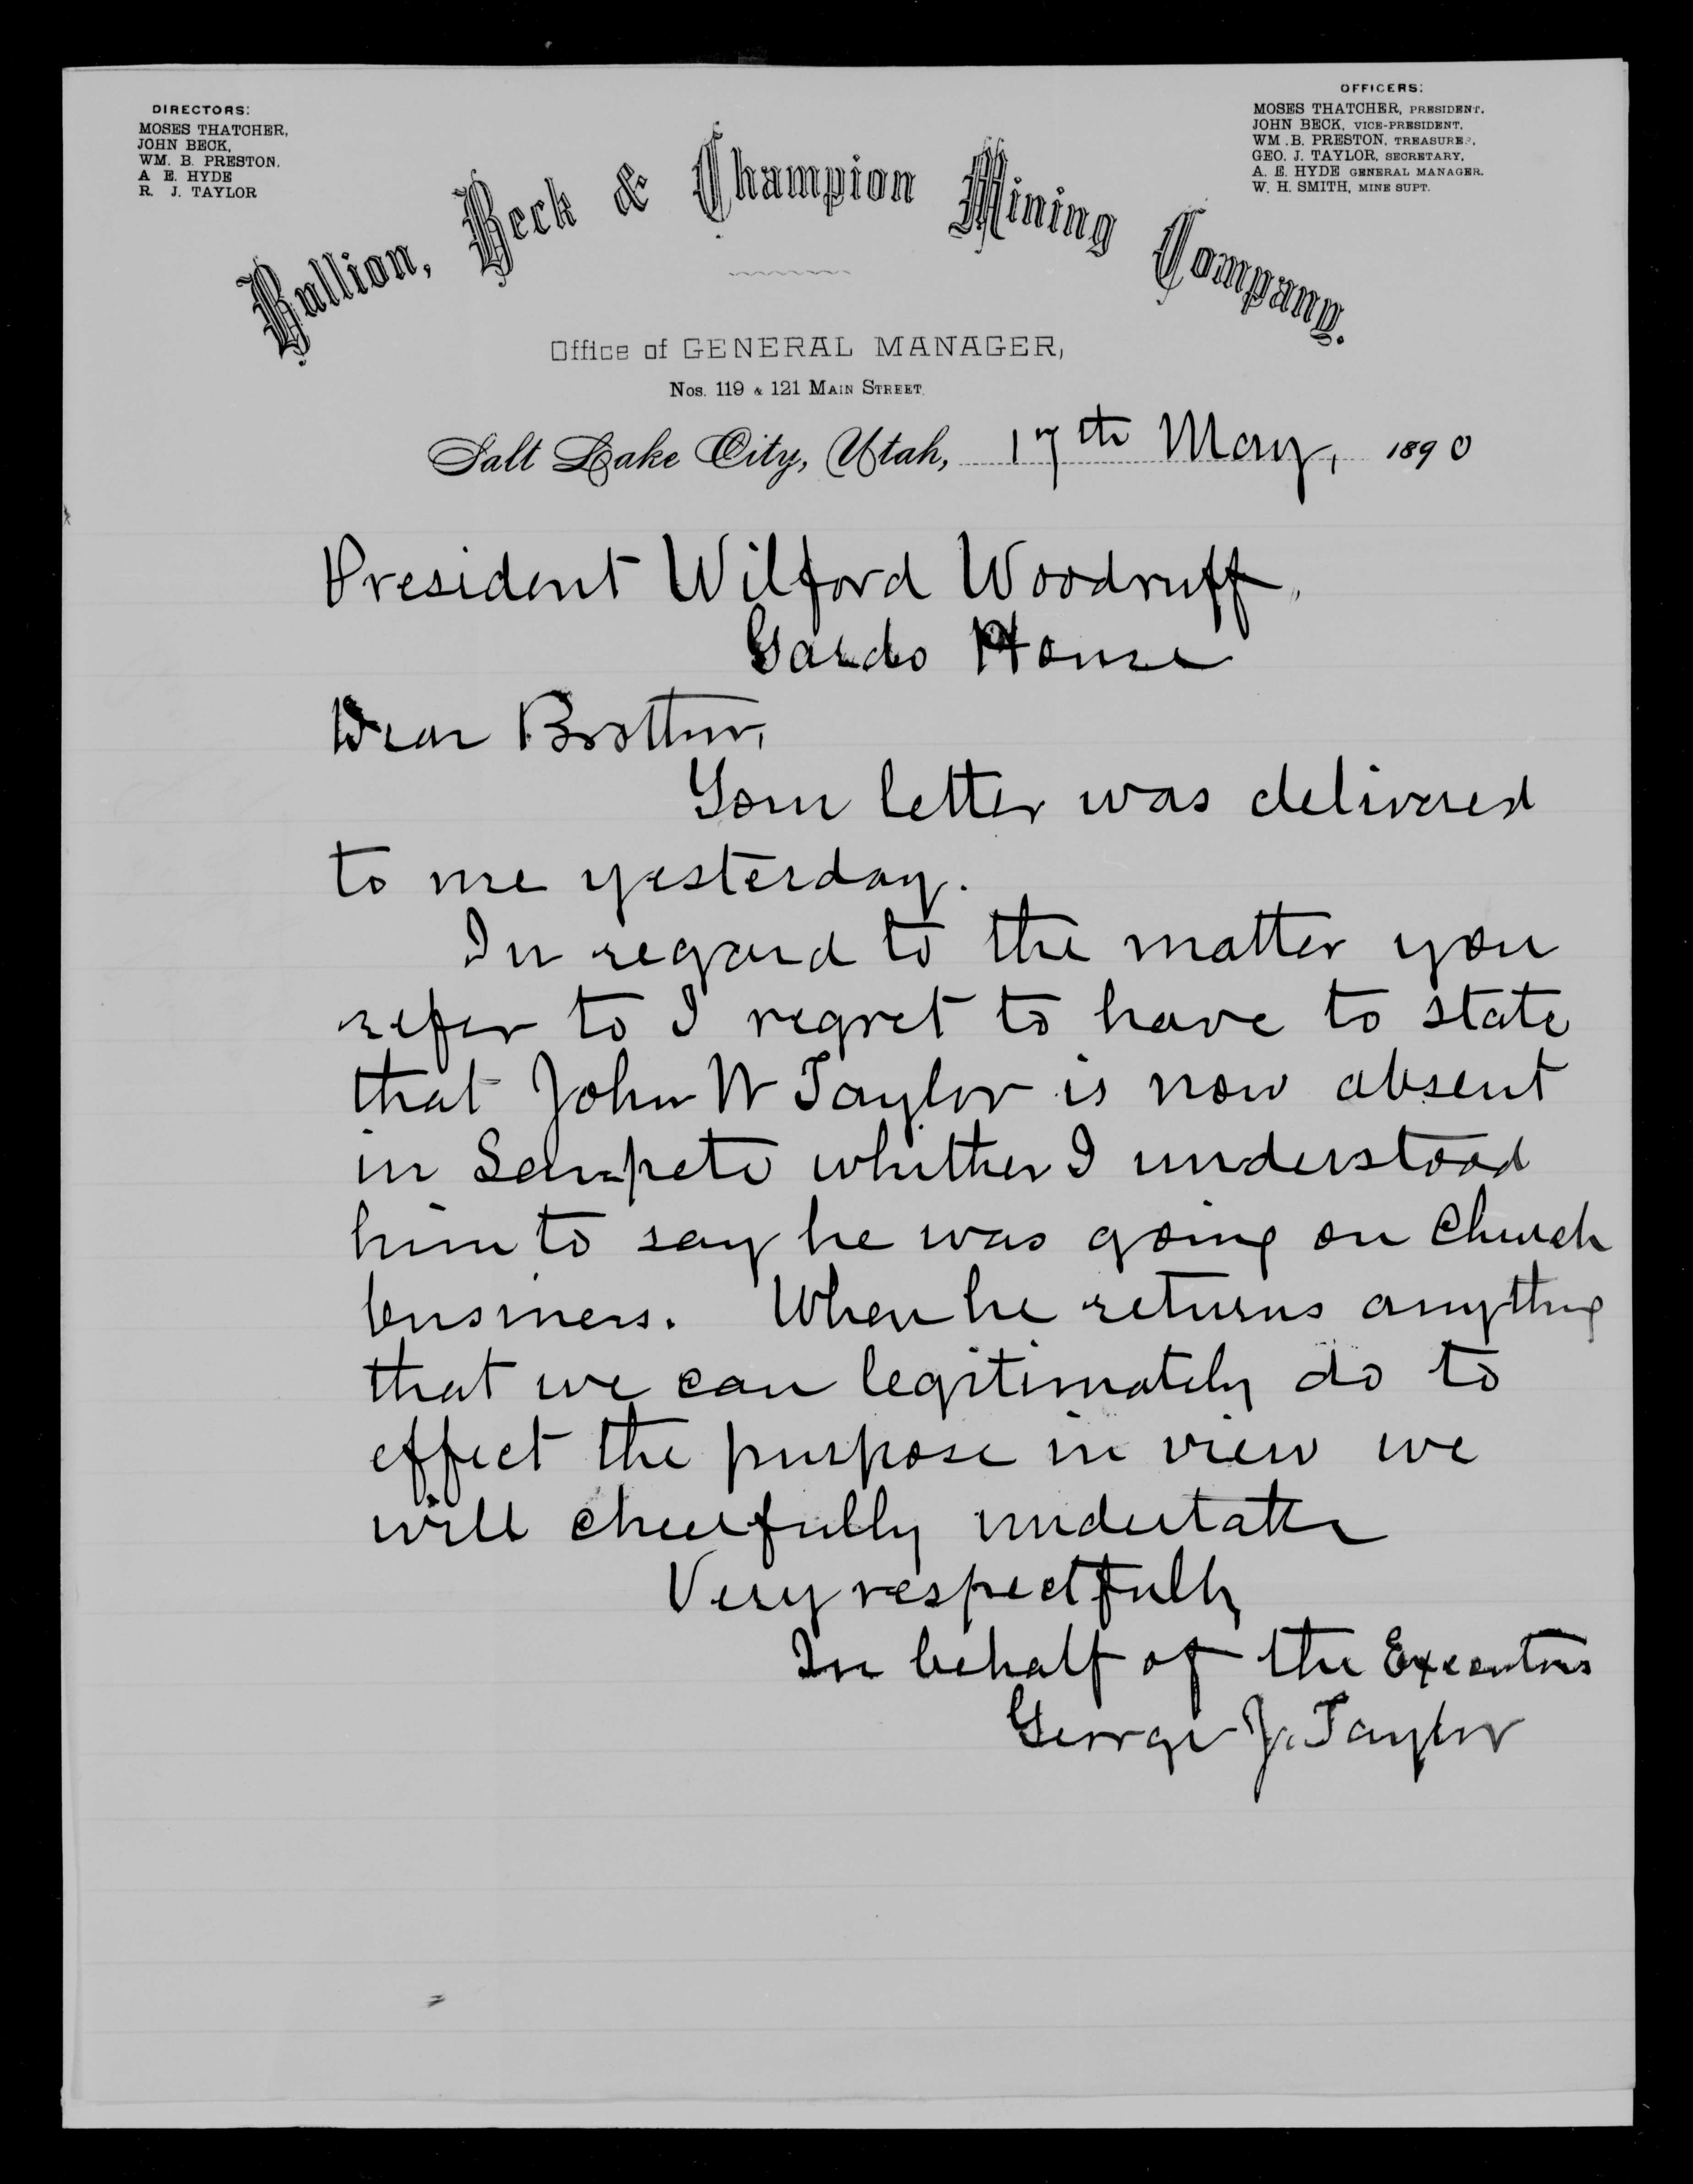 DIRECTORS:
MOSES THATCHER,
JOHN BECK,
WM. B. PRESTON.
A E. HYDE
R. J. TAYLOR
OFFICERS:
MOSES THATCHER, PRESIDENT.
JOHN BECK, VICE-PRESIDENT.
WM. B. PRESTON, TREASURER,
GEO. J. TAYLOR, SECRETARY,
A. E. HYDE GENERAL MANAGER.
W. H. SMITH, MINE SUPT.
Bullion, Beck & Champion Mining Company.
Office of GENERAL MANAGER,
Nos. 119 & 121 MAIN STREET.
Salt Lake City, Utah, 17th May, 1890
President Wilford Woodruff,
Gardo House
Dear Brother,
Your letter was delivered
to me yesterday.
In regard to the matter you
refer to I regret to have to state
that John W Taylor is now absent
in Sanpete whither I understood
him to say he was going on Church
business. When he returns anything
that we can legitimately do to
effect the purpose in view we
will cheerfully undertake
Very respectfully
In behalf of the Executors
George J. Taylor